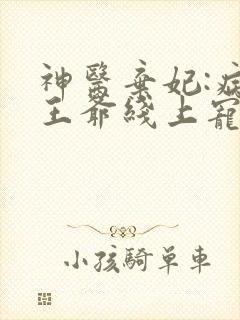 神醫棄妃:病
王爺綫上寵
小孩騎單車